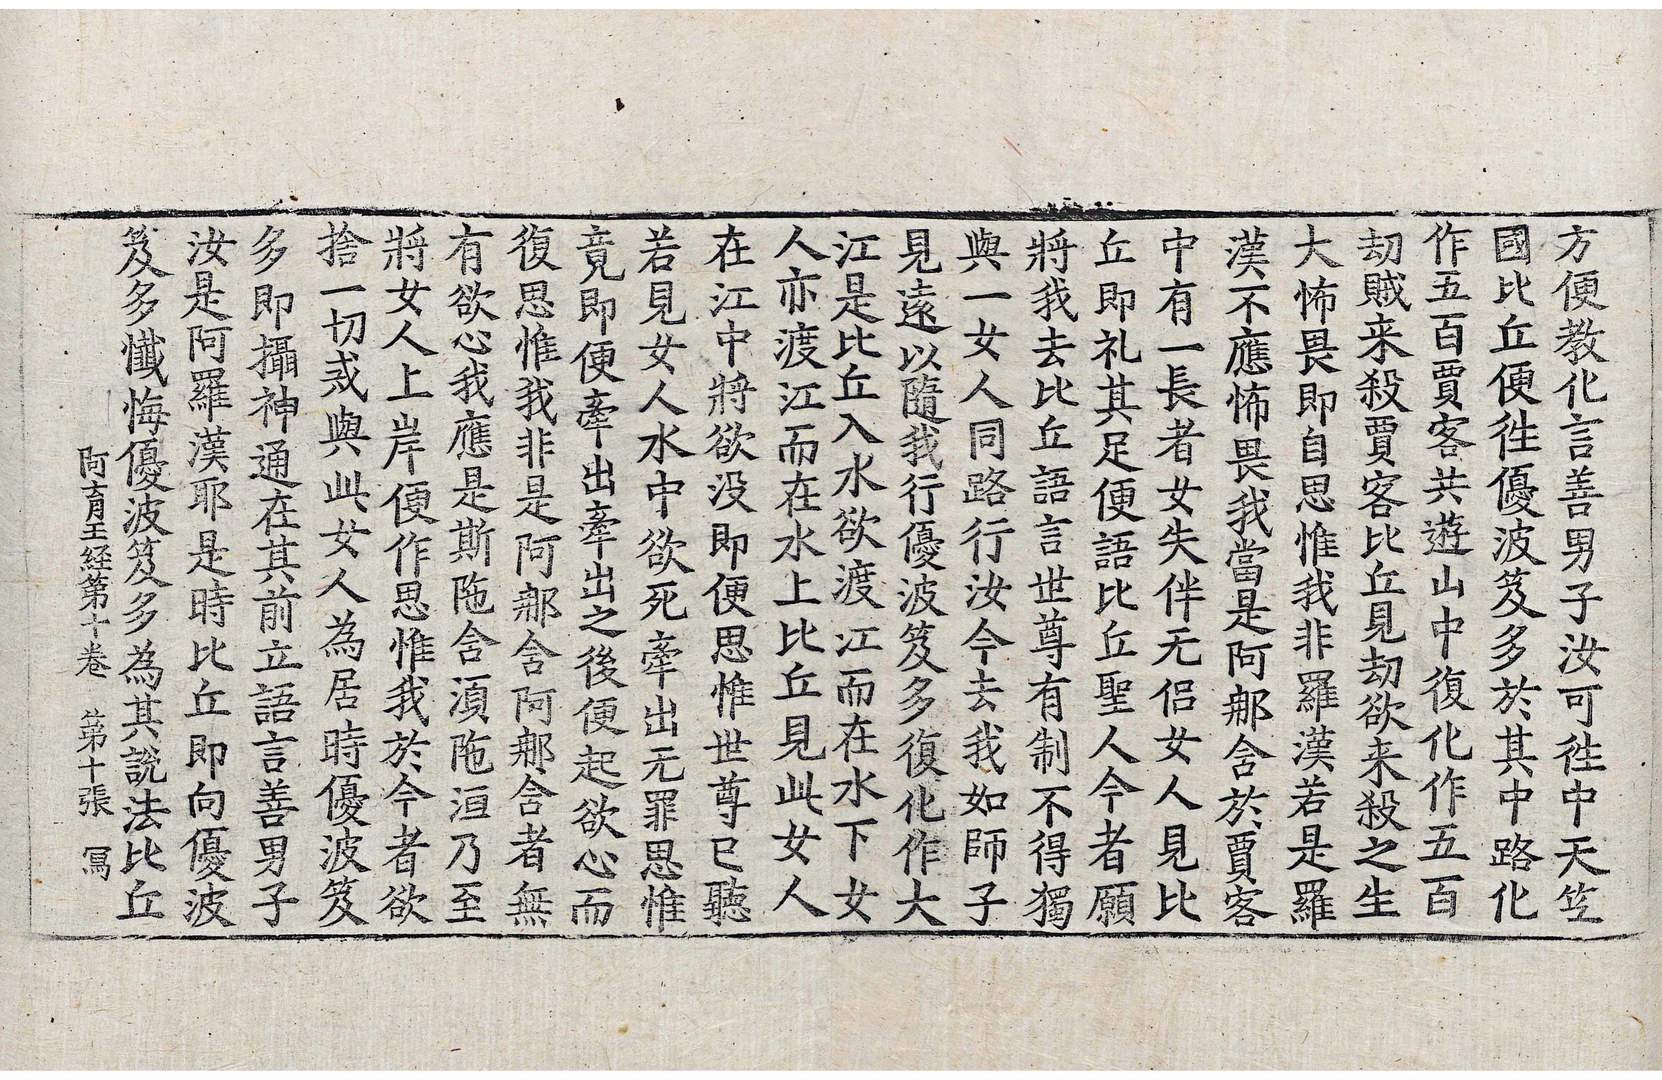 方便教化言善男子汝可往中天竺
國比丘便往優波笈多於其中路化
作五百賈客共遊山中復化作五百
劫賊来殺賈客比丘見劫欲来殺之生
大怖畏即自思惟我非羅漢若是羅
漢不應怖畏我當是阿那舍於賈客
中有一長者女失伴无侣女人見比
丘即礼其足便語比丘聖人今者願
將我去比丘語言世尊有制不得獨
與一女人同路行汝今去我如師子
見遠以隨我行優波笈多復化作大
江是比丘入水欲渡江而在水下女
人亦渡江而在水上比丘見此女人
在江中將欲没即便思惟世尊已聽
若見女人水中欲死牽出无罪思惟
竟即便牽出牽出之後便起欲心而
復思惟我非是阿那舍阿那舍者無
有欲心我應是斯陁舍湏陁洹乃至
將女人上岸便作思惟我於今者欲
捨一切戒與此女人為居時優波笈
多即攝神通在其前立語言善男子
汝是阿羅漢耶是時比丘即向優波
笈多懺悔優波笈多為其說法比丘
阿育王経第十卷 第十張 冩